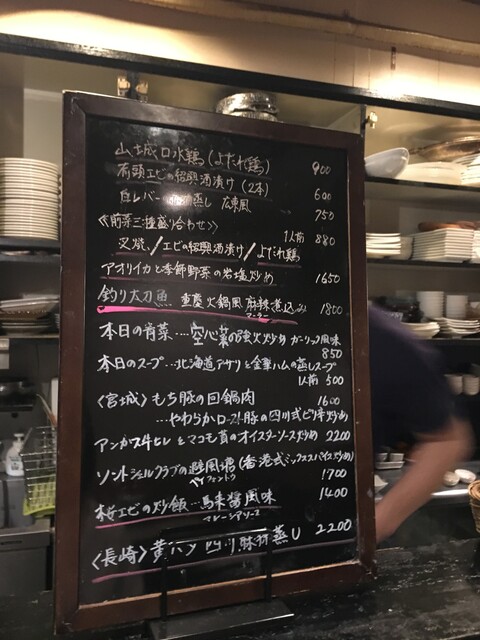 山城口水鶏(よだれ鶏) 900
有頭エビの紹興酒漬け(2本) 600
白レバー 蒸し 広東風 750
<前菜三種盛り合わせ> 1人前 880
叉焼/エビの紹興酒漬け/よだれ鶏
アオリイカと季節野菜の岩塩炒め 1650
釣り太刀魚 重慶火鍋風 麻辣煮込み 1800
マーラー
本日の青菜…空心菜の強火炒め ガーリック風味
850
本日のスープ…北海道アサリと金華ハムの蒸しスープ
1人前 500
<宮城>もち豚の回鍋肉 1600
…やわらかロースト豚の四川式ピリ辛炒め
アンガス牛ヒレとマコモ茸のオイスターソース炒め 2200
ソフトシェルクラブの避風塘(香港式ミックススパイス炒め)
ベイフォントウ 1700
桜エビの炒飯…馬来醤風味 1400
マレーシアソース
<長崎>黄ハタ 四川 蒸し 2200